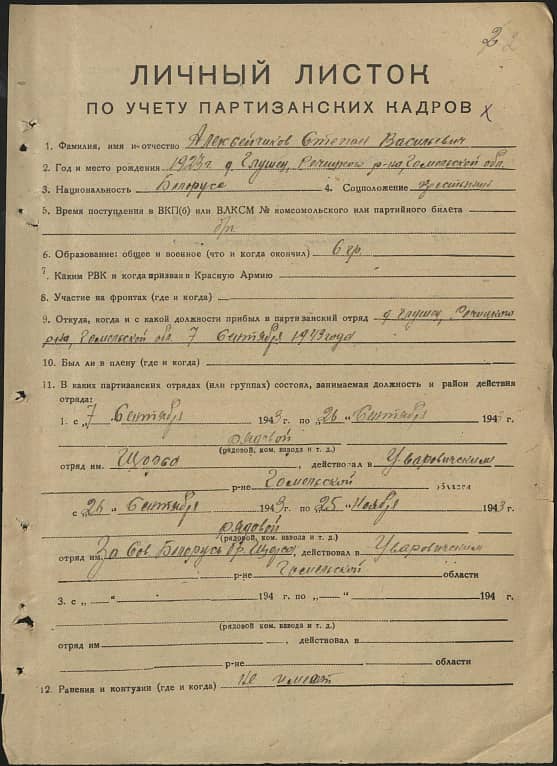 2
ЛИЧНЫЙ ЛИСТОК
ПО УЧЕТУ ПАРТИЗАНСКИХ КАДРОВ
1. Фамилия, имя и отчество Алексейчиков Степан Васильевич
2. Год и место рождения 1927г д. Глушец, Речицкого р-на, Гомельской обл.
3. Национальность Белорус 4. Соцположение крестьянин
5. Время поступления в ВКП(б) или ВЛКСМ № комсомольского или партийного билета
б/п
6. Образование: общее и военное (что и когда окончил) 6 гр.
7. Каким РВК и когда призван в Красную Армию
8. Участие на фронтах (где и когда)
9. Откуда, когда и с какой должности прибыл в партизанский отряд д. Глушец, Речицкого
р-на, Гомельской обл. 7 Сентября 1943 года
10. Был ли в плену (где и когда)
11. В каких партизанских отрядах (или группах) состоял, занимаемая должность и район действия
отряда:
1. с „7 Сентября 1943 г. по „26 “ Сентября 1943 г.
рядовой
(рядовой, ком. взвода и т. д.)
отряд им. Щорса, действовал в Уваровичском
р-не Гомельской области
с „26 “ Сентября 1943 г. по „25 “ Ноября 1943 г.
рядовой
(рядовой ком. взвода и т. д.)
отряд им. За Сов Белорусь бр. Щорса, действовал в Уваровичским
р-не Гомельской области
3. с „—“ 194 г. по „—“ 194 г.
(рядовой ком. взвода и т. д.)
отряд им. , действовал в
р-не области
12. Ранения и контузии (где и когда) Не имеет